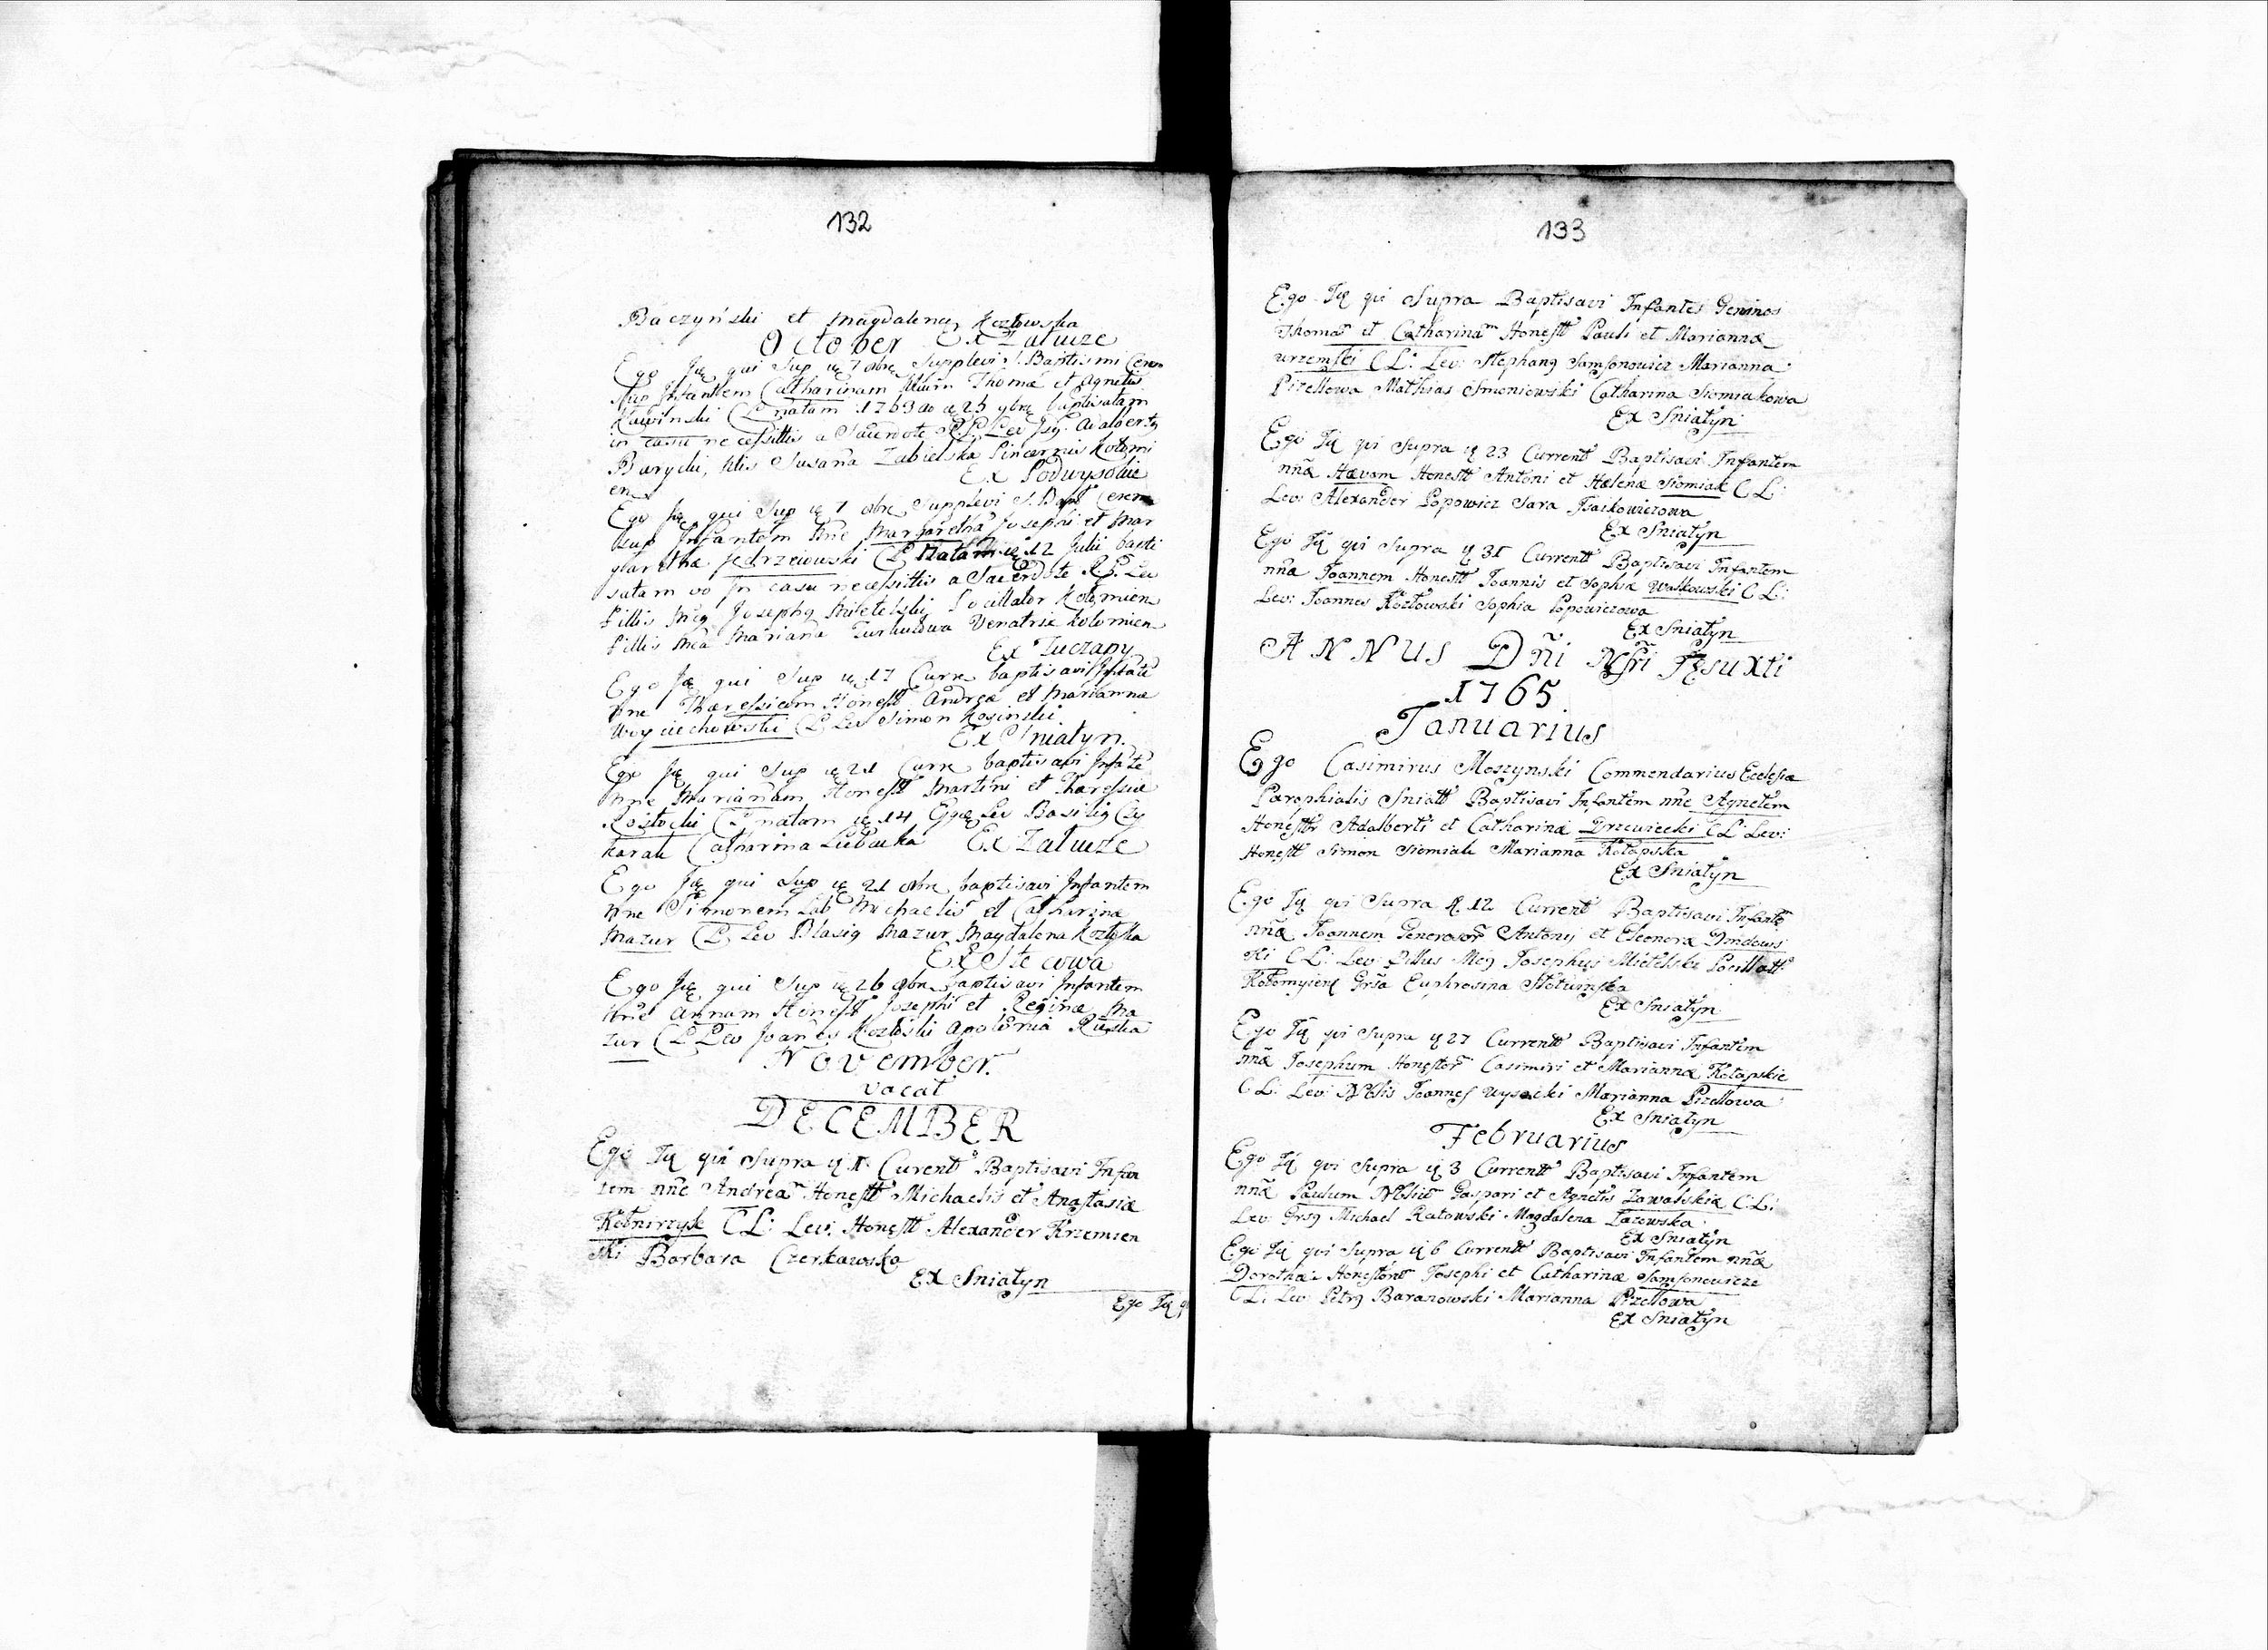 132
Baczyński et Magdalena Kozłowska
October Ex Załucze
Ego Ję qui Sup ię 7 obre Supplevi S. Baptismi Cerem
Sup Infantem Catharinam filiam Thomæ et Agnetis
Kawinski CL natam 1763 ao ię 25 ybre baptisatam
in casu necessittis a Sacerdote R. P. Lev
Susana Zabielska Pincernis Kołomi
en Ex Podwysokie
Ego Ję qui Sup ię 7 obre Supplevi S. Bapt Cerem
Sup Infantem nne Margaretha Josephi et Mar
garetha Jedrzeiowski CL Natam ię 12 Julii bapti
satam vo in casu necessittis a Sacerdote R. P. Lev
Pocillator Kołomien
Mariana Turkułowa Venatrix Kolomien
Ex Tuczapy
Ego Ję qui Sup ię 17 Curre baptisavi Infate
nne Thæressiam Honestt Andreæ et Mariannæ
Woyciechowski CL Lev Simon Kosinski
Ex Sniatyn.
Ego Ję qui Sup ię 21 Curre baptisavi Infate
nne Marianam Honestt Martini et Thæressiæ
CL natam ię 14 Lev Basilig Czy
Catharina Ex Załucze
Ego Ję qui Sup ię 21 obre baptisavi Infantem
nne Simonem Lab Michaelis et Catharinæ
Mazur CL Lev Blasig Mazur Magdalena
Ex Stecowa
Ego Ję qui Sup ię 26 obre baptisavi Infantem
nne Annam Honestt Josephi et Reginæ Ma
zur CL Lev Joanes Apolonia
November.
vacat
DECEMBER
Ego Ię qui Supra ię 1 Curentt Baptisavi Infan
tem nne Andream Honestt Michaelis et Anastasiæ
Kołnirzyk CL: Lev: Honestt Alexander Krzemien
ski Barbara Czerkawska
Ex Sniatyn
Ego Ię q
133
Ego Ię qui Supra Baptisavi Infantes Geminos
Thomam et Catharinam Honestt Pauli et Mariannæ
CL: Lev: Stephang Samsonowicz Marianna
Pizellowa Mathias Smoniewski Catharina Siomiakowa
Ex Sniatyn
Ego Ię qui Supra ię 23 Currentt Baptisavi Infantem
nnæ Hævam Honestt Antoni et Hælenæ Siomiak CL:
Lev: Alexander Popowicz Sara Isaikowiczowa
Ex Sniatyn
Ego Ię qui Supra ię 31 Currentt Baptisavi Infantem
nnæ Joannem Honestt Joannis et Sophiæ Wałkowski CL:
Lev: Joannes Kozłowski Sophia Popowiczowa
Ex Sniatyn
ANNUS Dñi Nsri Jęsuxti
1765
Januarius
Ego Casimirus Moszynski Commendarius Ecclesia
Parophialis Sniatt Baptisavi Infantem nnæ Agnetem
Honestor Adalberti et Catharinæ Drzewiecki CL: Lev:
Honestt Simon Siomiak Marianna Kotapska
Ex Sniatyn
Ego Ię qui Supra ię 12 Currentt Baptisavi Infante
nnæ Joannem Generosor Antonij et Eleonoræ
ki CL: Lev: Illus Mcg Josephus Mietelski Pocillatt
Kołomyien Grsa Euphrosina
Ex Sniatyn
Ego Ię qui Supra ię 27 Currentt Baptisavi Infantem
nnæ Josephum Honestor Casimiri et Mariannæ Kotapskie
CL: Lev: Nblis Joannes Wysocki Marianna Pizellowa
Ex Sniatyn
Februarius
Ego Ię qui Supra ię 3 Currentt Baptisavi Infantem
nnæ Paulum Nbliu Gaspari et Agnetis Zawalskie CL:
Lev: Grsg Michael Rutowski Magdalena Łazowska
Ex Sniatyn
Ego Ię qui Supra ię 6 Currentt Baptisavi Infantem nnæ
Dorotheæ Honestor Josephi et Catharinæ Samsonowicze
CL: Lev: Petrg Baranowski Marianna Pizellowa
Ex Sniatyn